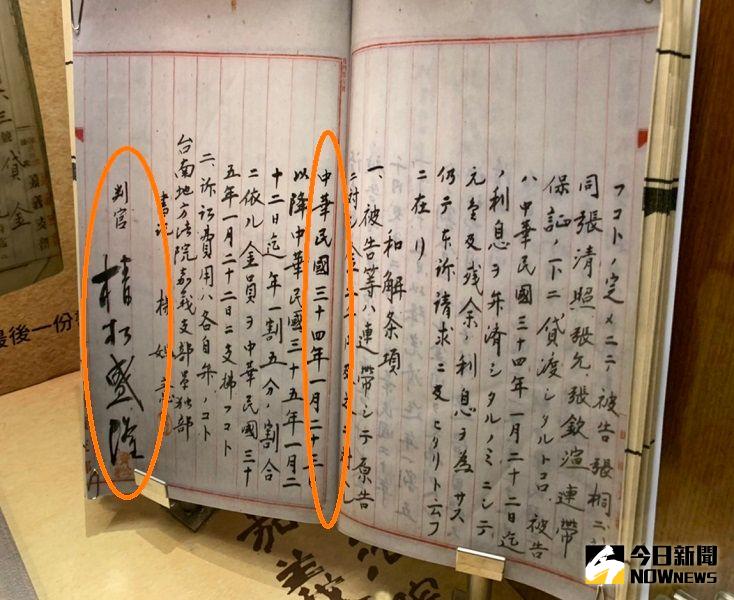 フコトノ定メニテ被告張桐ニ
同張清照張允張欽渲連帶
保証ノ下ニ貸渡シタルトコロ被告
ハ中華民國三十四年一月二十二日迄
ノ利息ヲ弁済シタルノミニシテ
元金及残余ノ利息ヲ為サス
仍テ本訴請求ニ及ヒタリト云フ
ニ在リ
和解条項
一、被告等ハ連帶シテ原告
ニ対シ金
中華民國三十四年一月二十三
以降中華民國三十五年一月二
十二日迄年一割五分ノ割合
ニ依ル金員ヲ中華民國三十
五年一月二十二日ニ支拂フコト
二、訴訟費用ハ各自弁ノコト
台南地方法院嘉義支部單独部
書記
判官 楠松盛隆
最後一份
貸金
今日新聞
NOWnews